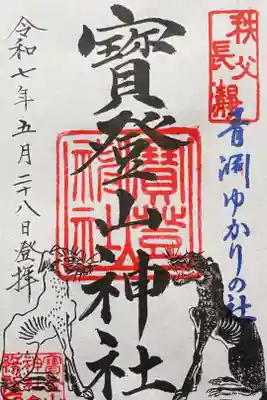 秩父
長瀞
青淵ゆかりの社
寳登山神社
寳登山
神社
令和七年五月二十八日登拝